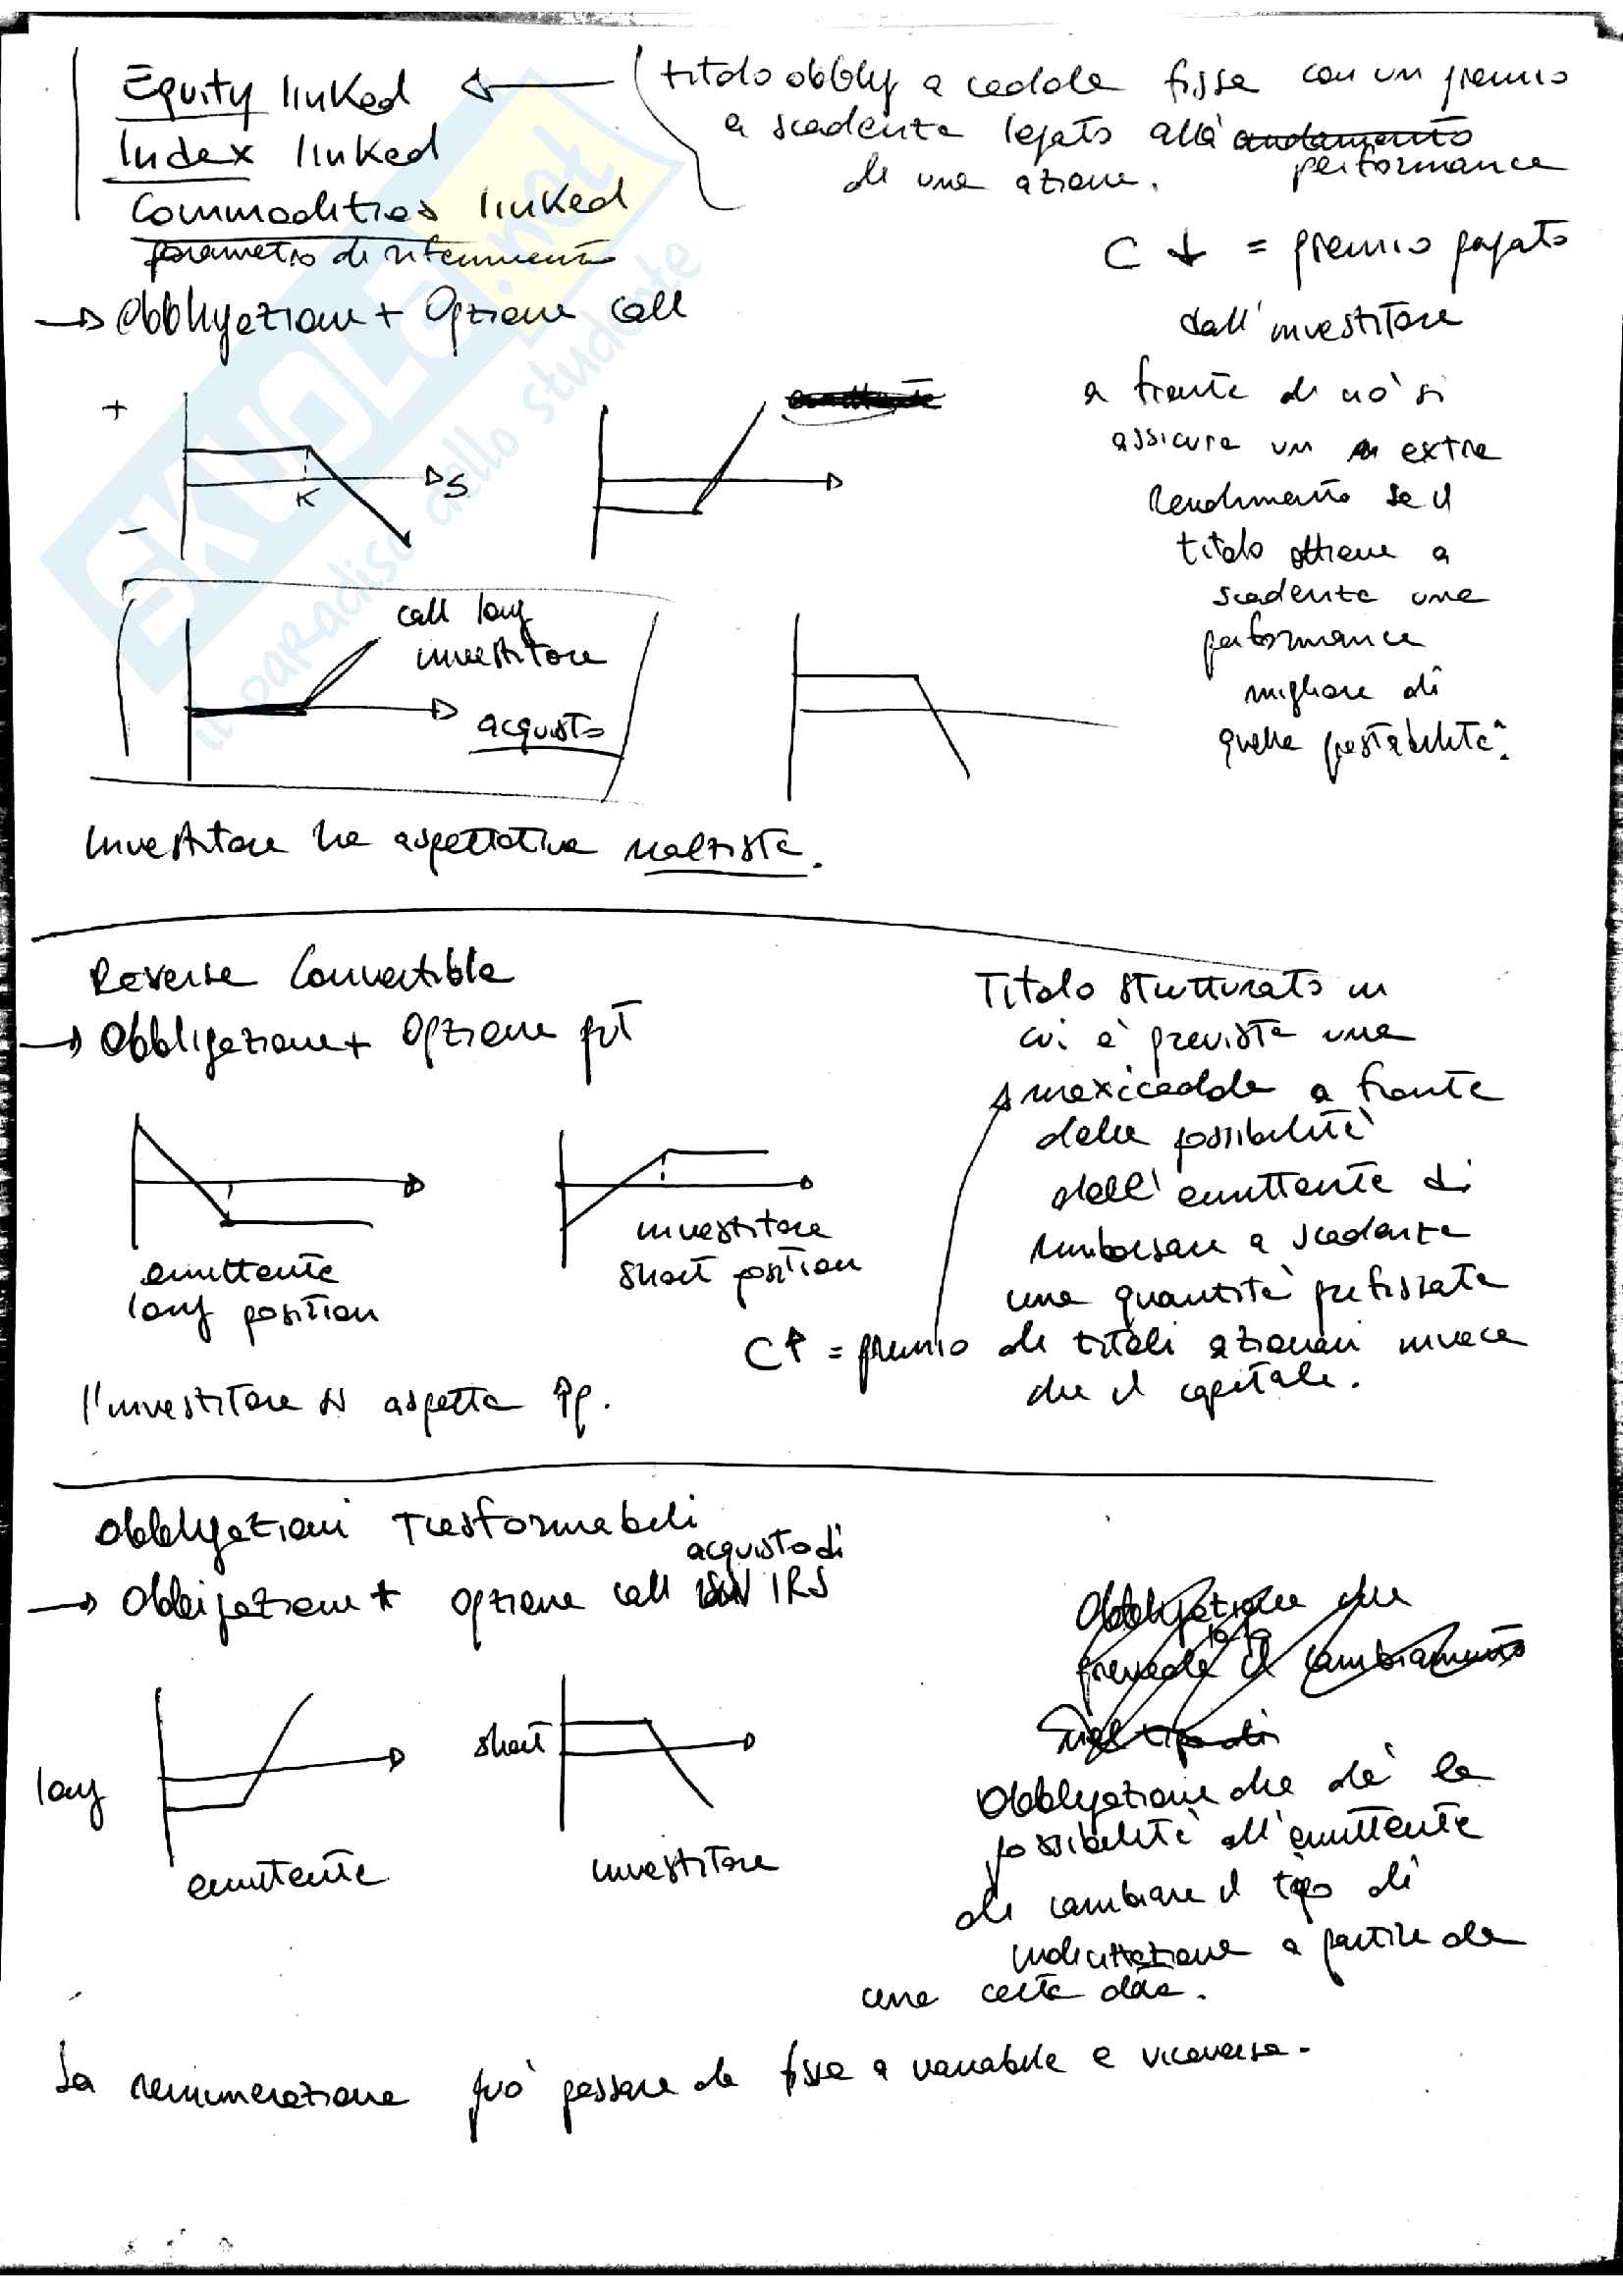 Equity linked
Index linked
Commodities linked
parametro di riferimento
titolo obblig a cedole fisse con un premio
a scadenza legato alla andamento
performance
di una azione.
C ↓ = premio pagato
dall'investitore
a fronte di ciò si
assicura un extra
rendimento se il
titolo ottiene a
scadenza una
performance
migliore di
quella prestabilita.
→ Obbligazione + Opzione call
+
K
S
−
call long
investitore
acquisto
Investitore ha aspettativa rialzista.
Reverse Convertible
→ Obbligazione + Opzione put
Titolo strutturato in
cui è prevista una
maxicedola a fronte
della possibilità
dell'emittente di
rimborsare a scadenza
una quantità prefissata
di titoli azionari invece
che il capitale.
emittente
long position
investitore
short position
C↑ = premio
l'investitore si aspetta ↑p.
Obbligazioni Trasformabili
acquisto di
→ Obbligazione + opzione call IRS
Obbligazione che
prevede il cambiamento
long
emittente
short
investitore
Obbligazione che dà la
possibilità all'emittente
di cambiare il tipo di
indicizzazione a partire da
una certa data.
La remunerazione può passare da fissa a variabile e viceversa.
SKUOLA.net
il paradiso dello studente